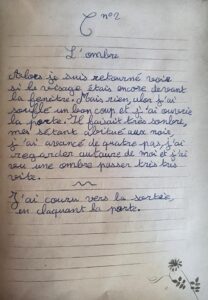 C n°2
L'ombre
Alors je suis retourné voir
si le visage étais encore devant
la fenêtre. Mais rien, alor j'ai
soufflé un bon coup et j'ai ouvrit
la porte. Il faisait très sombre,
moi sétant abituer aux noir,
j'ai avancé de quatre pas, j'ai
regarder autaure de moi et j'ai
vou une ombre passer très très
vite.
J'ai couru vers la sortie,
en claquant la porte.